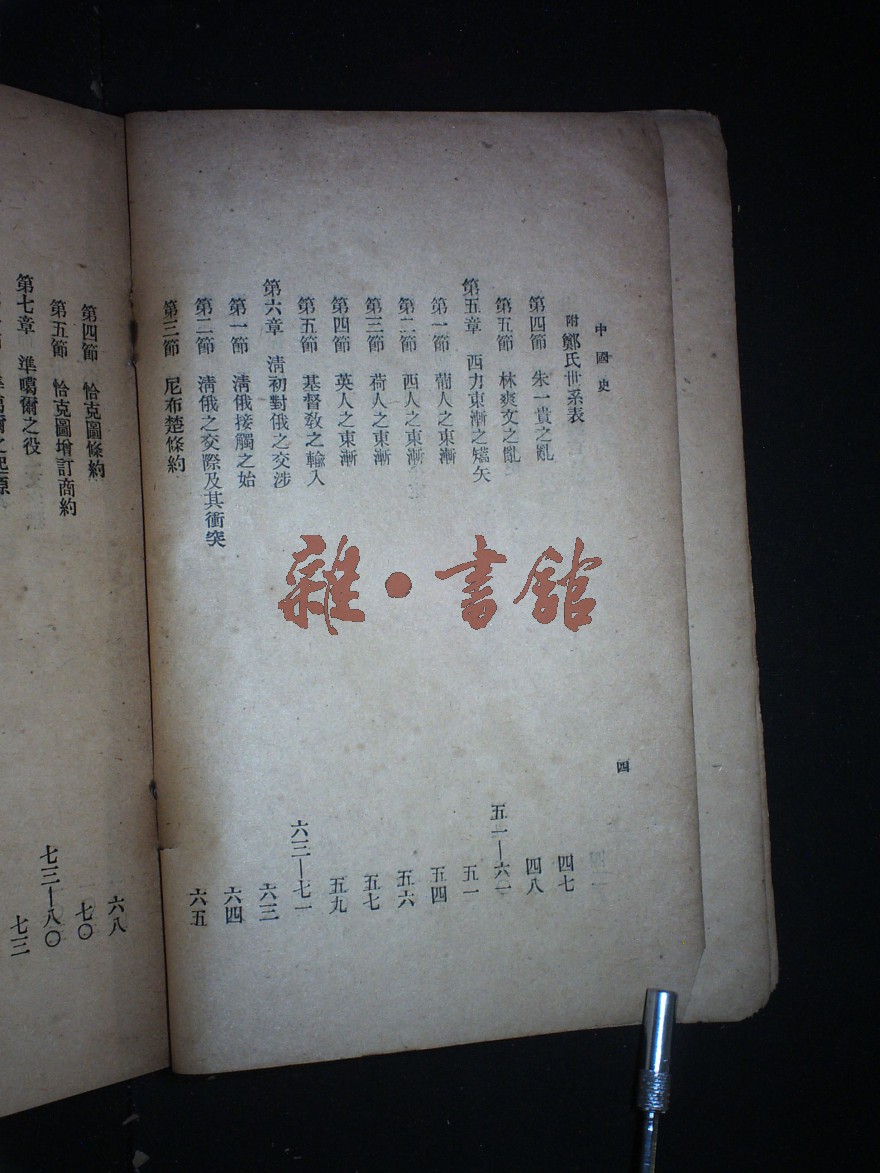 中國史 四
附 鄭氏世系表
第四節 朱一貴之亂 四七
第五節 林爽文之亂 四八
第五章 西力東漸之嚆矢 五一—六一
第一節 葡人之東漸 五一
第二節 西人之東漸 五四
第三節 荷人之東漸 五六
第四節 英人之東漸 五七
第五節 基督教之輸入 五九
第六章 清初對俄之交涉 六三—七一
第一節 清俄接觸之始 六三
第二節 清俄之交際及其衝突 六四
第三節 尼布楚條約 六五
第四節 恰克圖條約 六八
第五節 恰克圖增訂商約 七〇
第七章 準噶爾之役 七三—八〇
之起源 七三
雜·書館